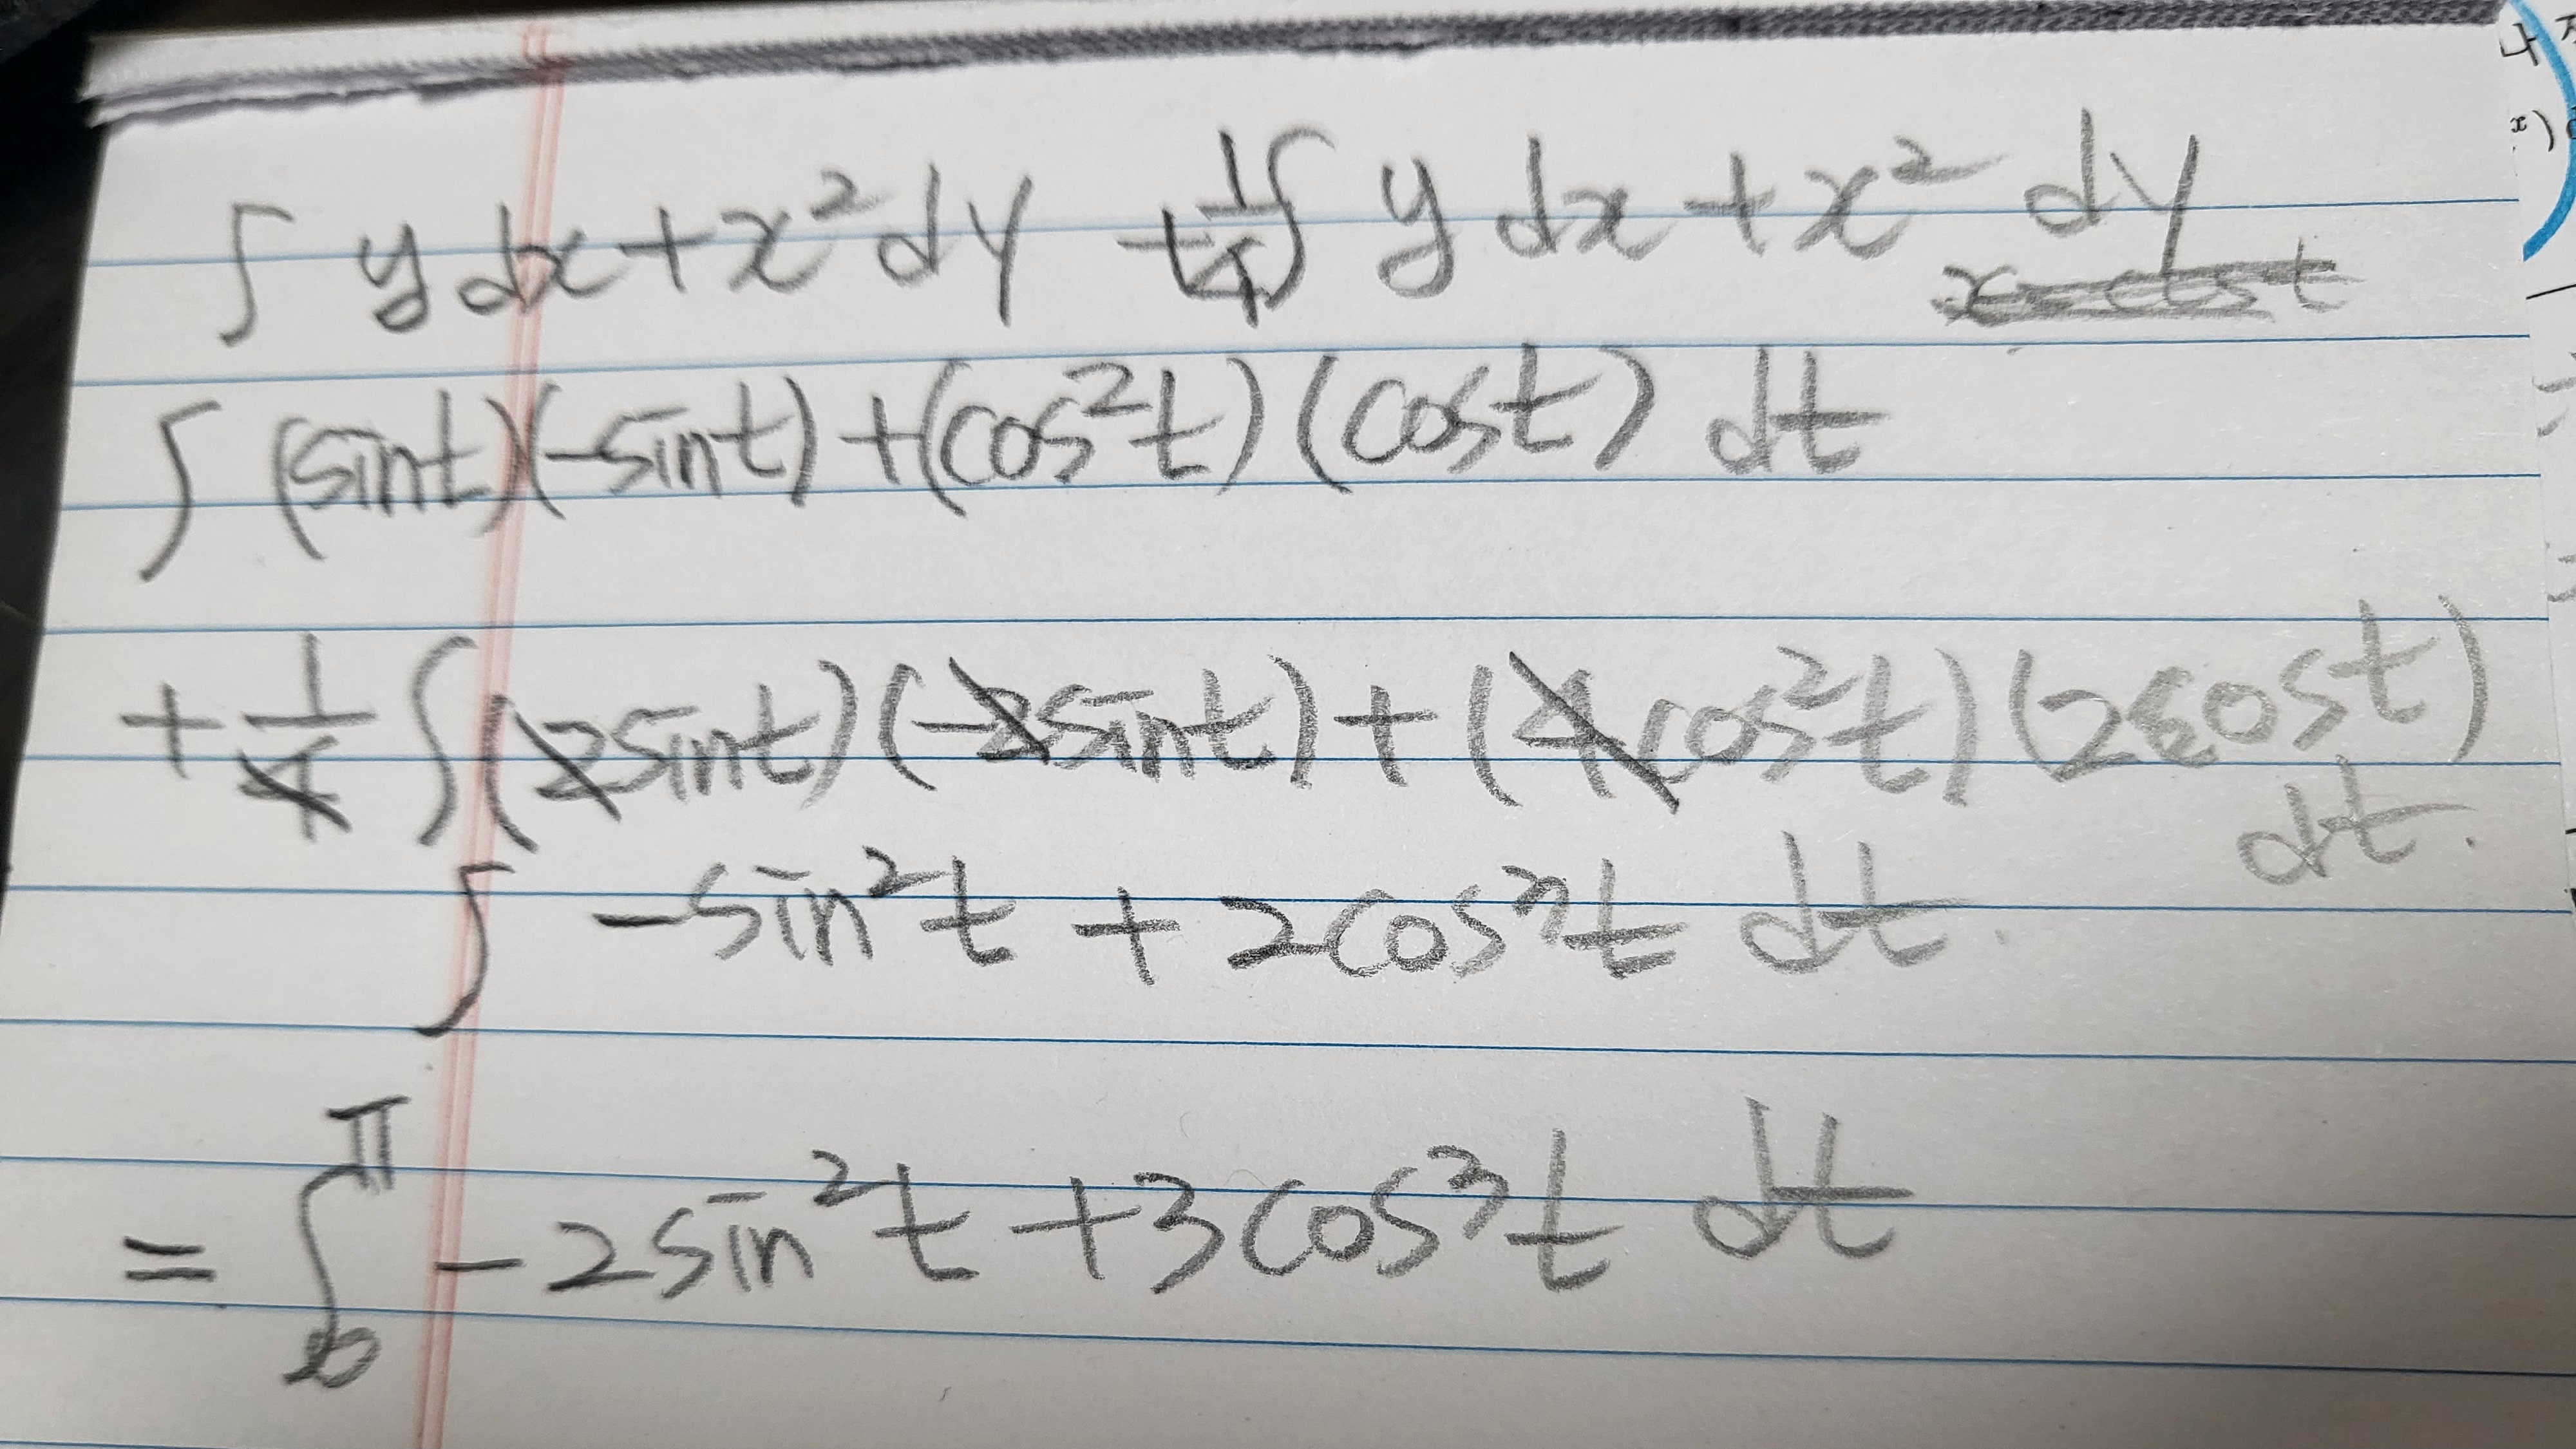 ∫ y dx + x² dy + 1/4 ∫ y dx + x² dy
∫ (sint)(-sint) + (cos²t)(cost) dt
+ 1/4 ∫ (2sint)(-2sint) + (4cos²t)(2cost) dt.
∫ -sin²t + 2cos³t dt
= ∫₀^π -2sin²t + 3cos³t dt